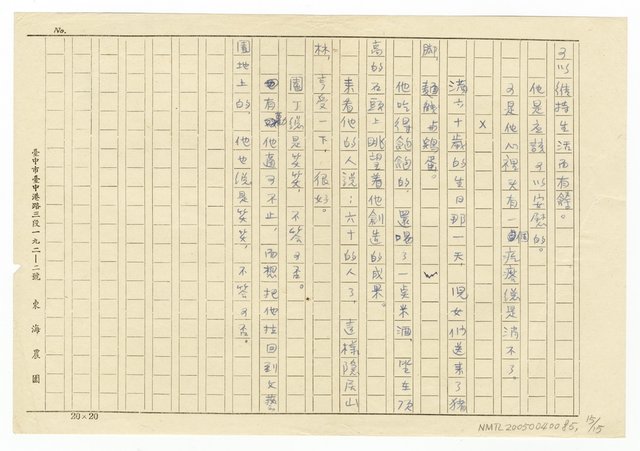 No.
可以維持生活而有餘。
他是應該可以安慰的。
可是他心裡有一個疙瘩總是消不了。
X
滿六十歲的生日那一天,兒女們送來了豬
脚,麵線與鷄蛋。
他吃得飽飽的,還喝了一點米酒,坐在頂
高的石頭上眺望着他創造的成果。
來看他的人說:六十的人了,這樣隱居山
林,享受一下,很好。
園丁總是笑笑,不答可否。
也有勸他適可不止,而想把他拉回到文藝
園地上的,他也總是笑笑,不答可否。
臺中市臺中港路三段一九二—二號 東海農園
20×20
NMTL20050040085, 15/15